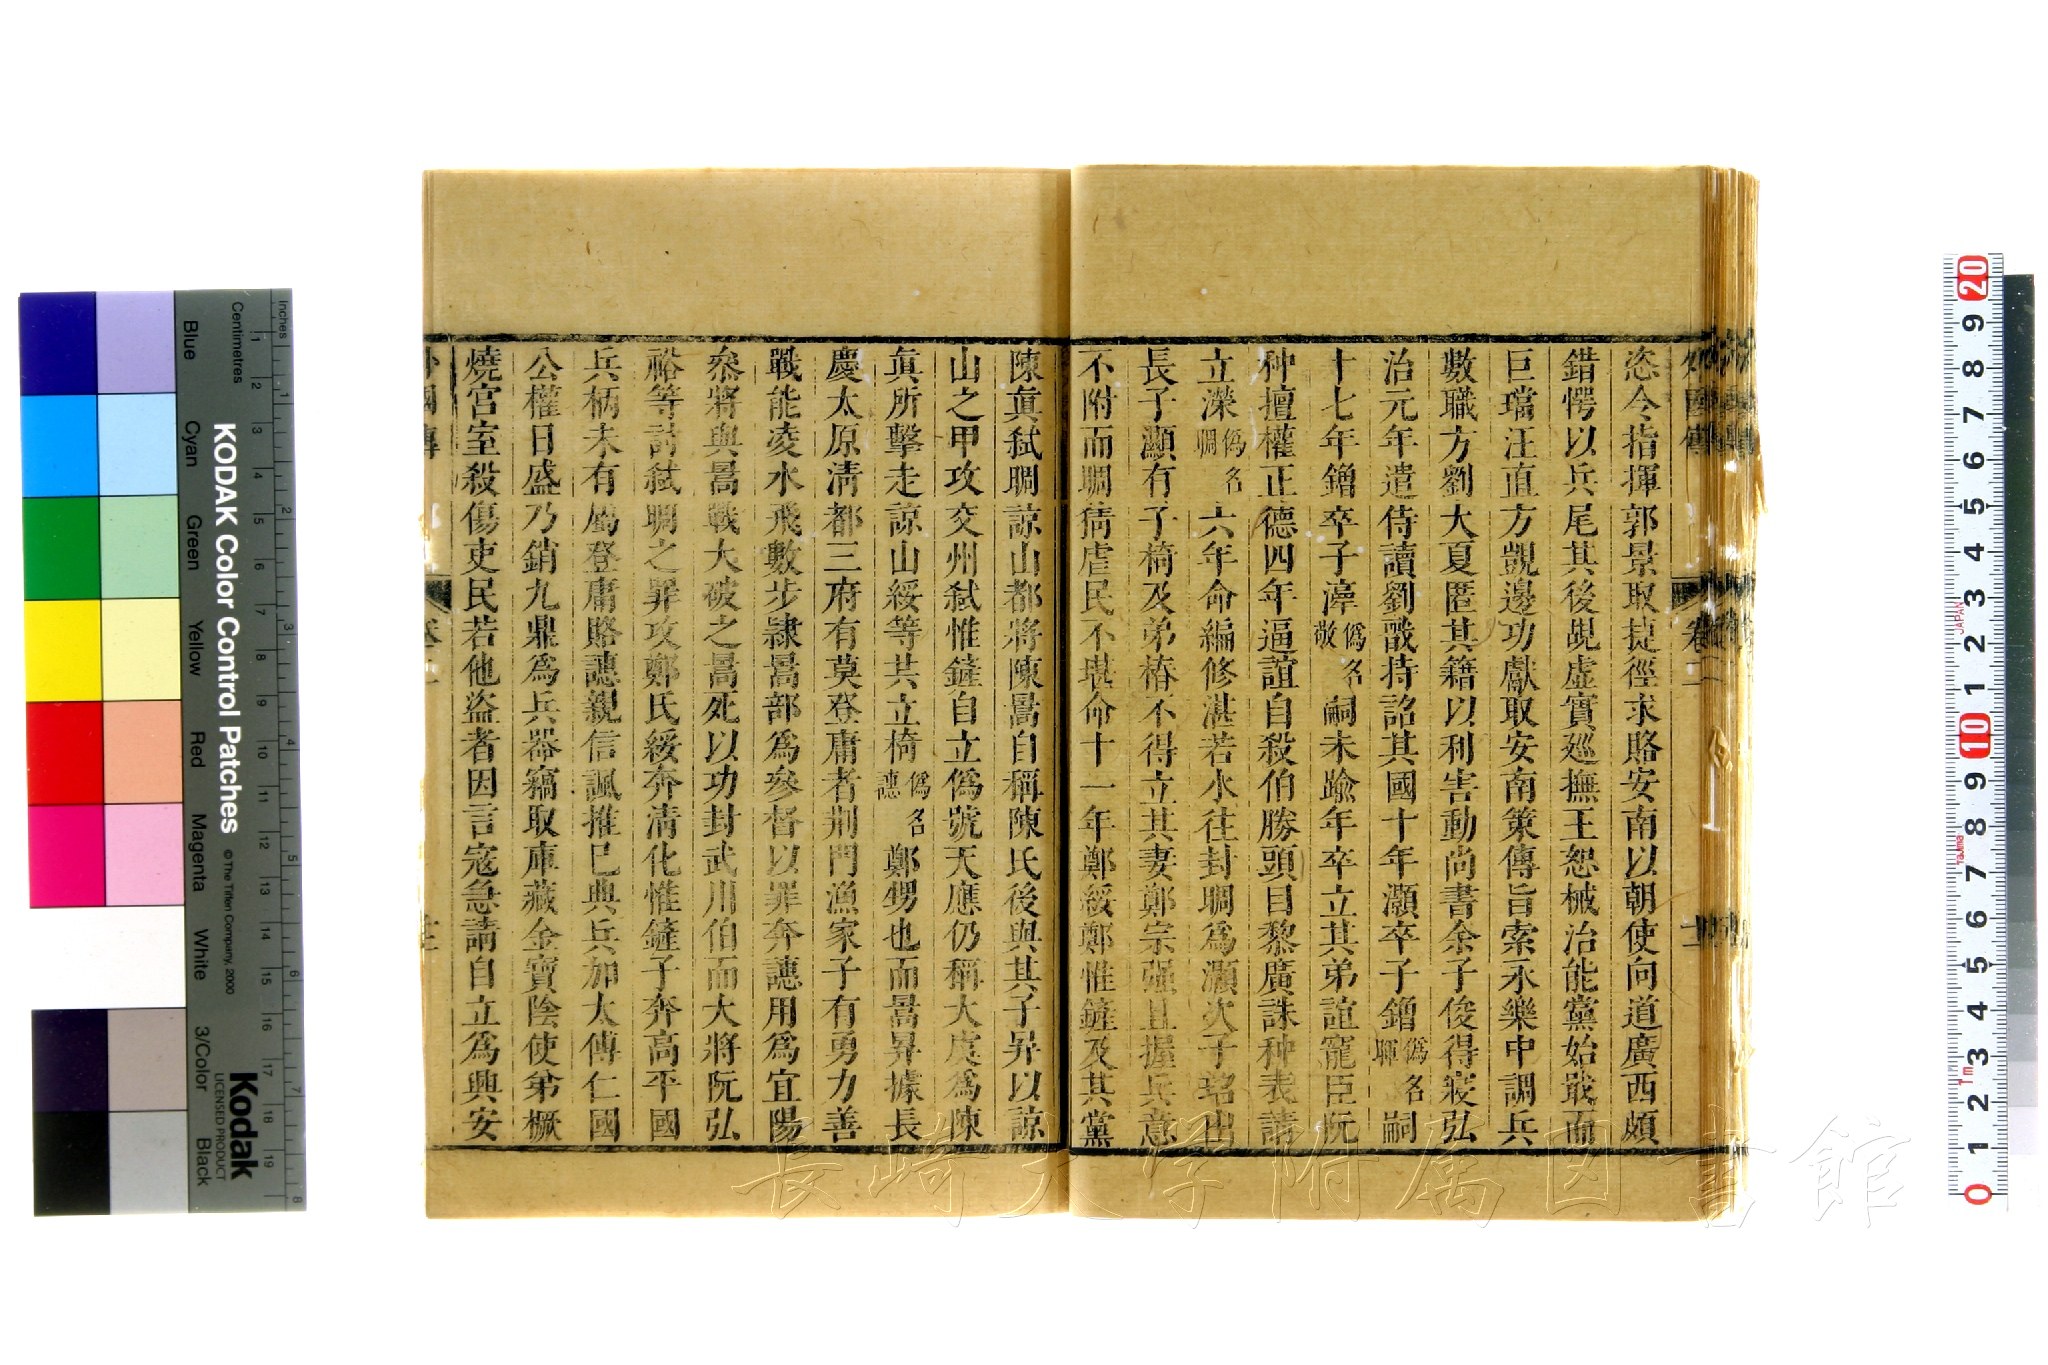 恣令指揮郭景取捷徑求賂安南以朝使向道廣西頗
錯愕以兵尾其後覘虛實廵撫王恕械治能黨始戢而
巨璫汪直方覬邊功獻取安南策傳旨索永樂中調兵
數職方劉大夏匿其籍以利害動尚書余子俊得寢弘
治元年遣侍讀劉戩持詔其國十年灝卒子鏳僞名暉嗣
十七年鏳卒子𣽂僞名敬嗣未踰年卒立其弟誼寵臣阮
种擅權正德四年逼誼自殺伯勝頭目黎廣誅种表請
立濚僞名晭六年命編修湛若水往封晭爲灝次子𤧤出
長子灝有子椅及弟椿不得立其妻鄭宗强且握兵意
不附而晭猜虐民不堪命十一年鄭綏鄭惟鏟及其黨
陳眞弑晭諒山都將陳暠自稱陳氏後與其子昇以諒
山之甲攻交州弑惟鏟自立僞號天應仍稱大虞爲陳
眞所擊走諒山綏等共立椅僞名譓鄭甥也而暠昇據長
慶太原淸都三府有莫登庸者荆門漁家子有勇力善
戰能凌水飛數步隷暠部爲參督以罪奔譓用爲宜陽
叅將與暠戰大破之暠死以功封武川伯而大將阮弘
裕等討弑晭之罪攻鄭氏綏奔淸化惟鏟子奔高平國
兵柄未有屬登庸賂譓親信諷推已典兵加太傅仁國
公權日盛乃銷九鼎爲兵器竊取庫藏金寶陰使弟橛
燒宮室殺傷吏民若他盗者因言寇急請自立爲興安
外國傳
卷二
十一
KODAK Color Control Patches
© The Tiffen Company, 2000
Kodak
LICENSED PRODUCT
Inches
Centimetres
Blue
Cyan
Green
Yellow
Red
Magenta
White
3/Color
Black
長崎大学附属図書館